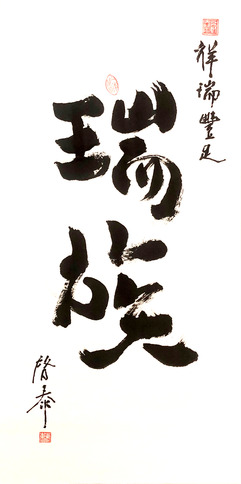 祥瑞豐足
瑞族
啓泰